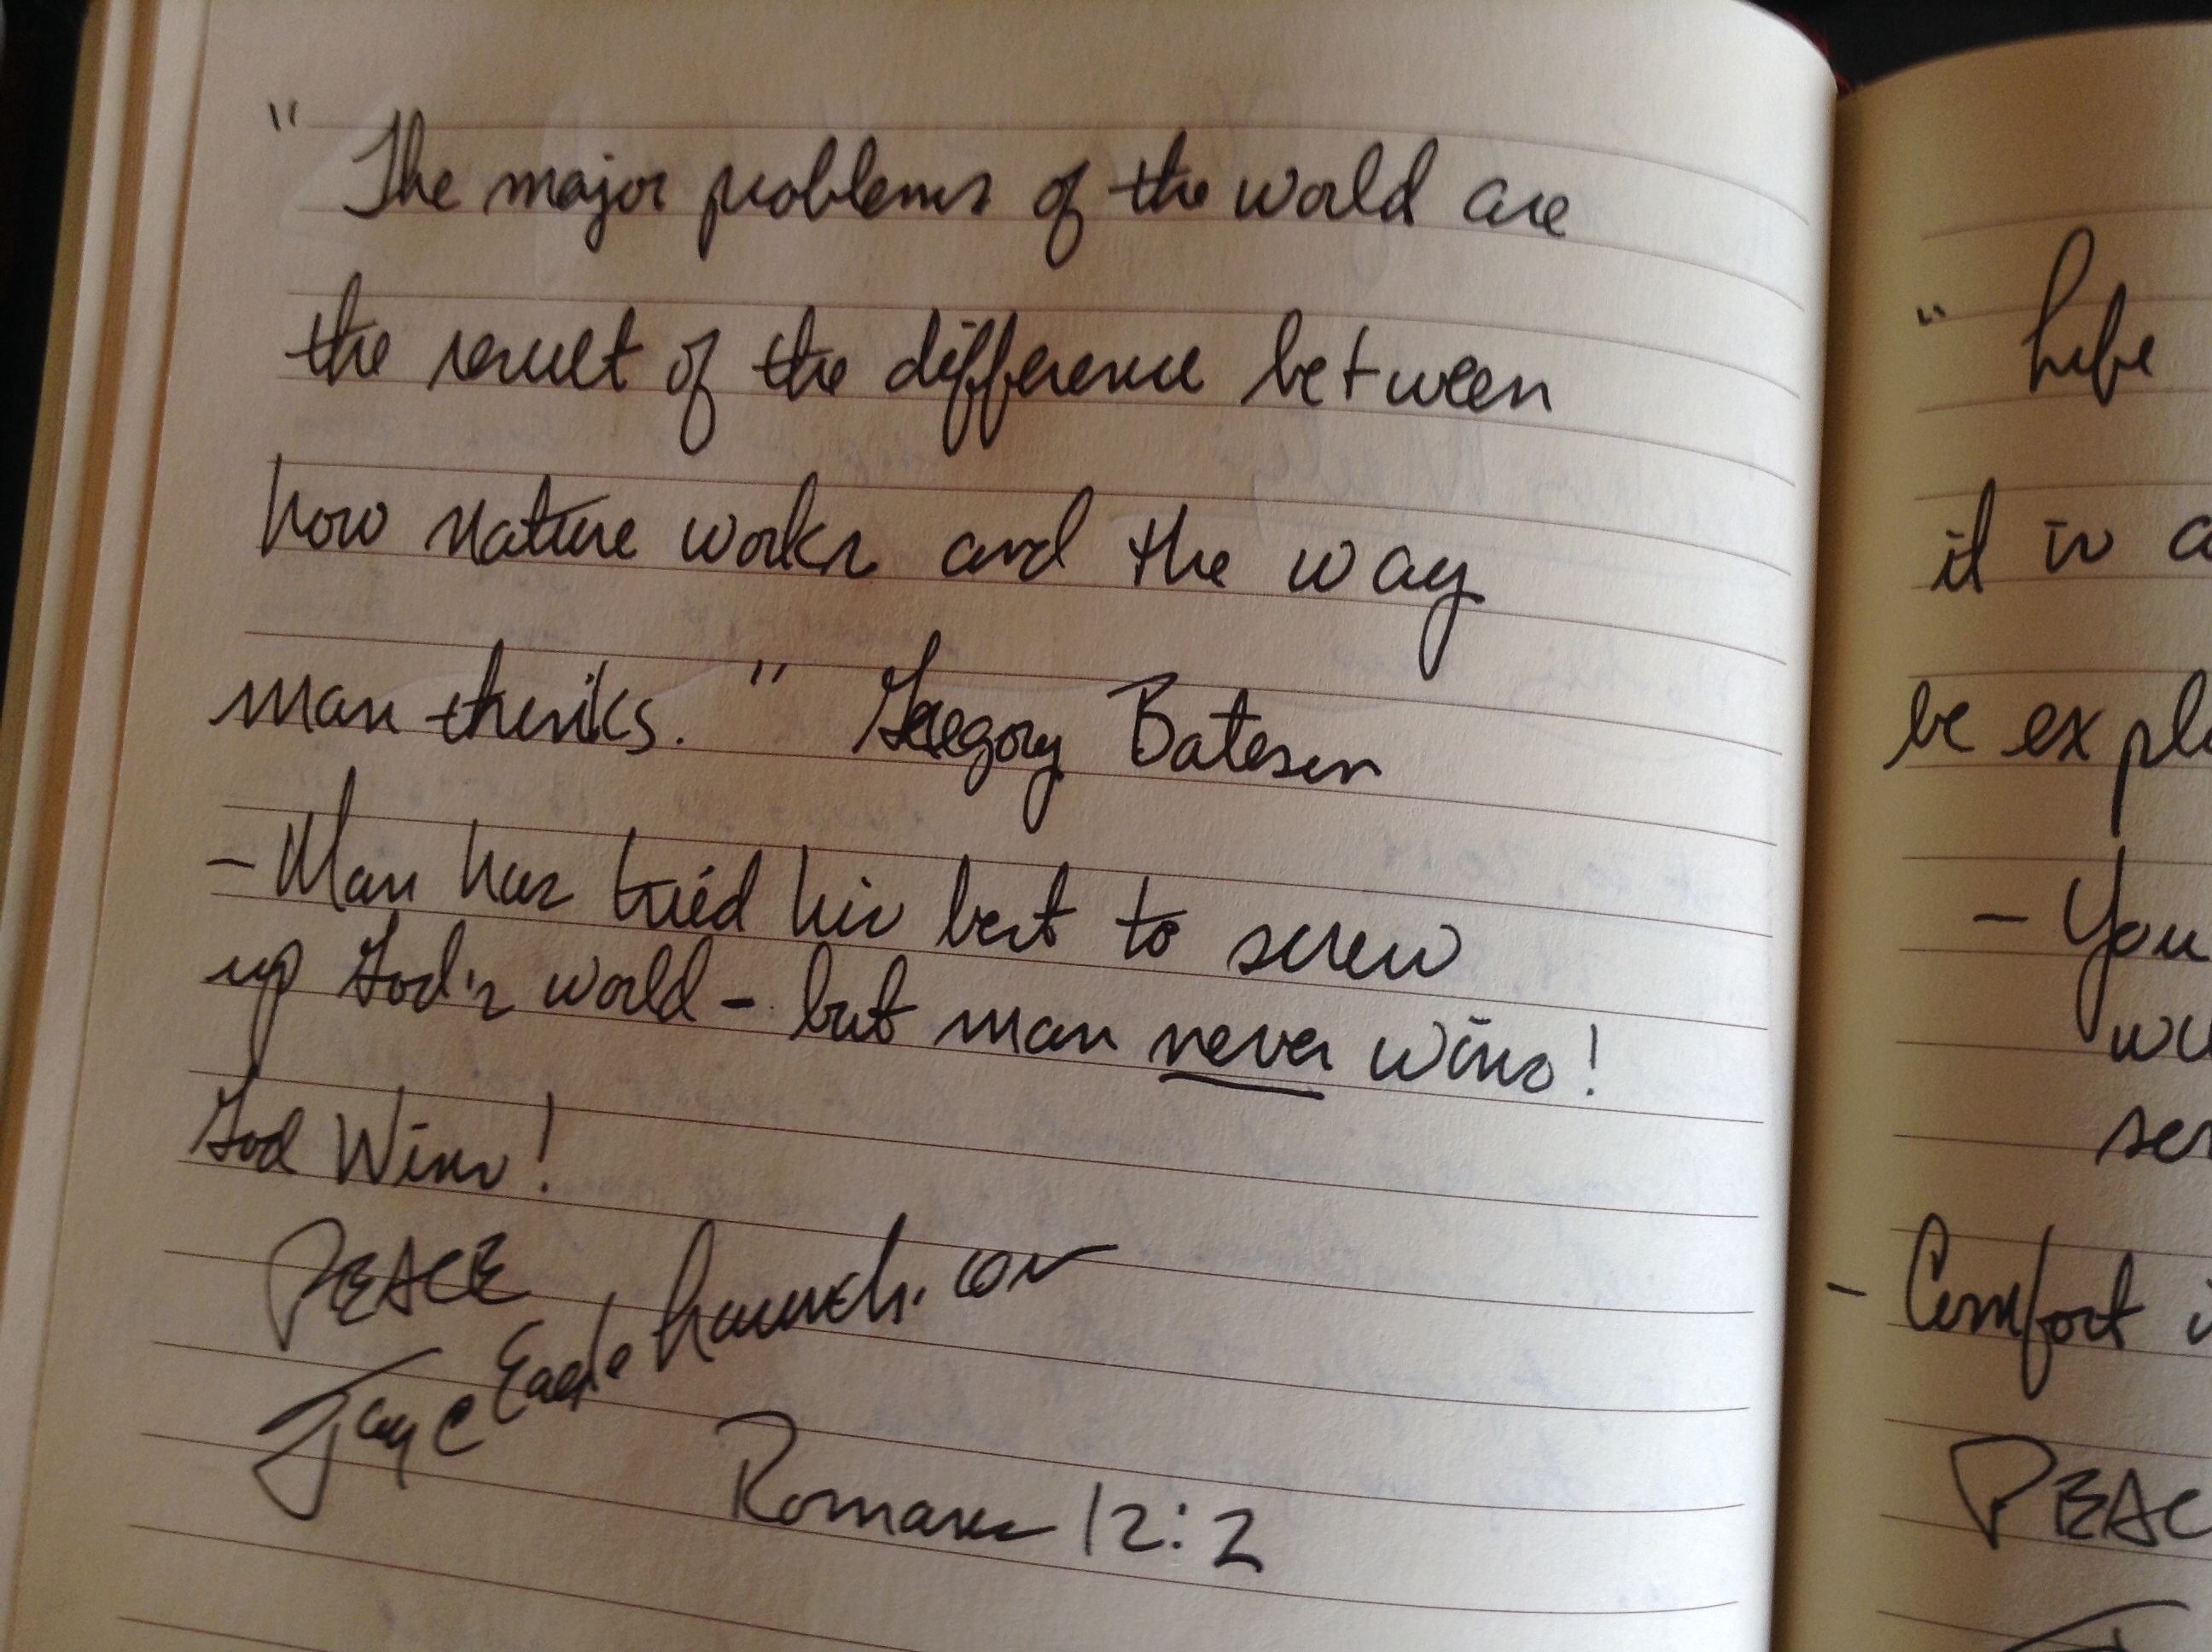 "The major problems of the world are
the result of the difference between
how nature works and the way
man thinks." Gregory Bateson
- Man has tried his best to screw
up God's world - but man never wins!
God Wins!
PEACE
Jay C
Romans 12:2
" Life
it is
be
- You
- Comfort